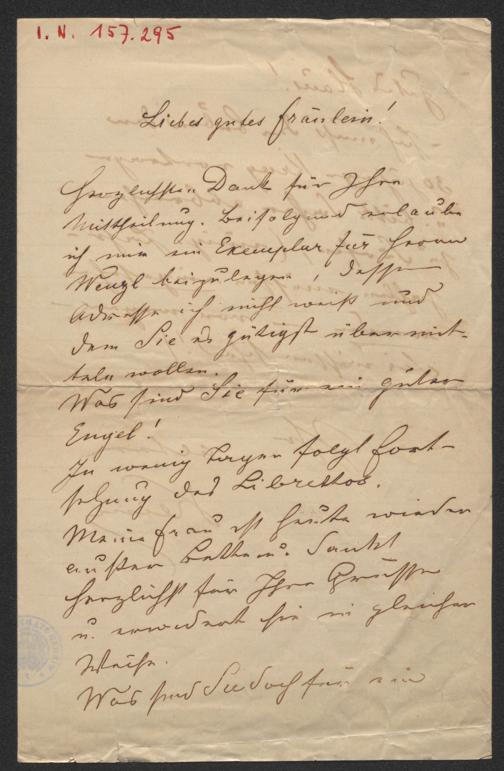 I. N. 157.295
Liebes gutes Fräulein!
Herzlichsten Dank für Ihre
Mittheilung. Beifolgend erlaube
ich mir ein Exemplar für Herrn
Wenzl beizulegen, dessen
Adresse ich nicht weiß und
dem Sie es gütigst übermit-
teln wollen.
Was sind Sie für ein guter
Engel!
In wenig Tagen folgt Fort-
setzung des Librettos.
Meine Frau ist heute wieder
außer Bette u. dankt
herzlichst für Ihre Grüsse
u. erwidert sie in gleicher
Weise.
Was sind Sie doch für ein